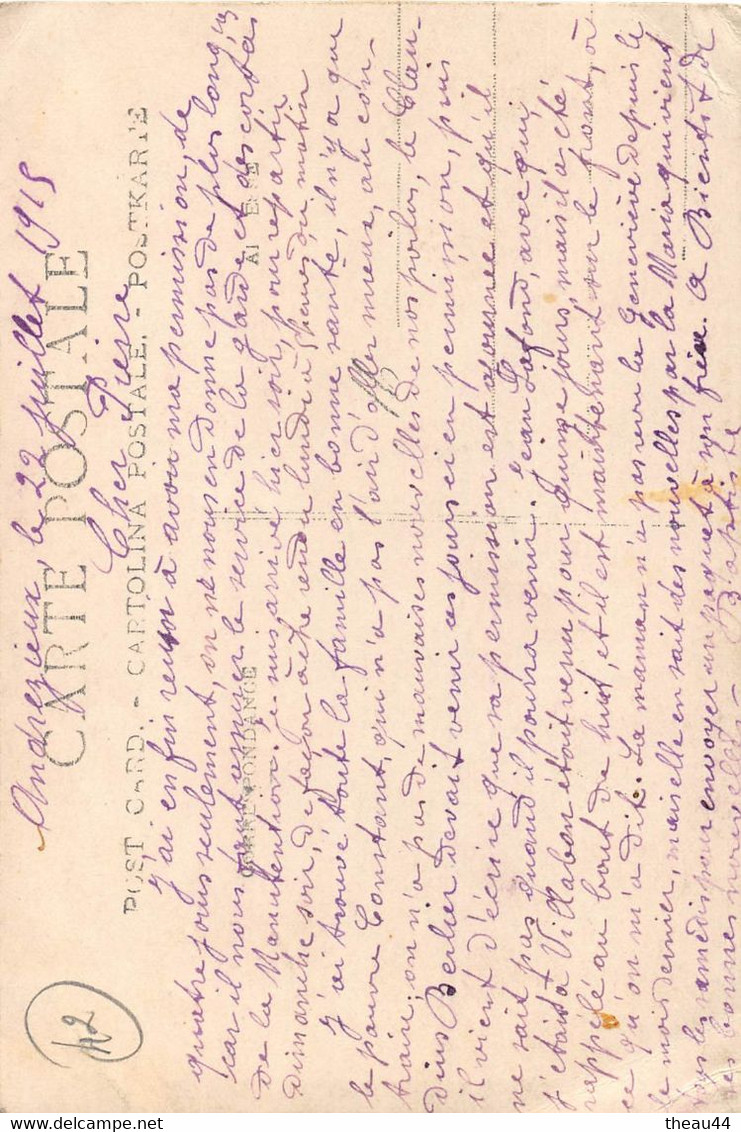 Andrézieux, le 22 juillet 1915
CARTE POSTALE
Cher Pierre
POST CARD. - CARTOLINA POSTALE. - POSTKARTE
J'ai enfin réussi à avoir ma permission, de
quatre jours seulement, on ne nous en donne pas de plus longues
car il nous faut assurer le service de la garde et des corvées
CORRESPONDANCE
de la Manutention. Je suis arrivé hier soir, pour repartir
Dimanche soir, de façon à être rendu lundi à heures du matin
J'ai trouvé toute la famille en bonne santé, il n'y a que
le pauvre Constant, qui n'a pas l'air d'aller mieux, au con-
traire, on n'a pas de mauvaises nouvelles de nos poilus, le Clau-
dius Berlier devait venir ces jours ci en permission, puis
il vient d'écrire que sa permission est ajournée et qu'il
ne sait pas quand il pourra venir. Jean Lafond, avec qui
j'étais à Villabon était venu pour quinze jours, mais il a été
rappelé au bout de huit, et il est maintenant sur le front, à
ce qu'on m'a dit. La maman n'a pas revu la Geneviève depuis le
le mois dernier, mais elle en sait des nouvelles par la Maria qui vient
tous les samedis pour envoyer un paquet à son frère. A Bientôt de
tes bonnes nouvelles. Baptiste
42
theau44